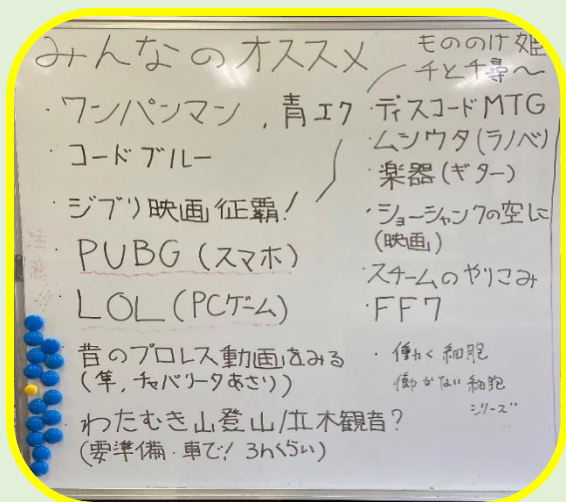 みんなのオススメ
・ワンパンマン，青エク
・コードブルー
・ジブリ映画征覇！
もののけ姫
千と千尋〜
・PUBG（スマホ）
・LOL（PCゲーム）
・昔のプロレス動画をみる
（隼，チャパリータあさり）
・わたむき山登山/立木観音？
（要準備・車で！3hくらい）
・ディスコードMTG
・ムシウタ（ラノベ）
・楽器（ギター）
・ショーシャンクの空に
（映画）
・スチームのやりこみ
・FF7
・働く細胞
働かない細胞
シリーズ